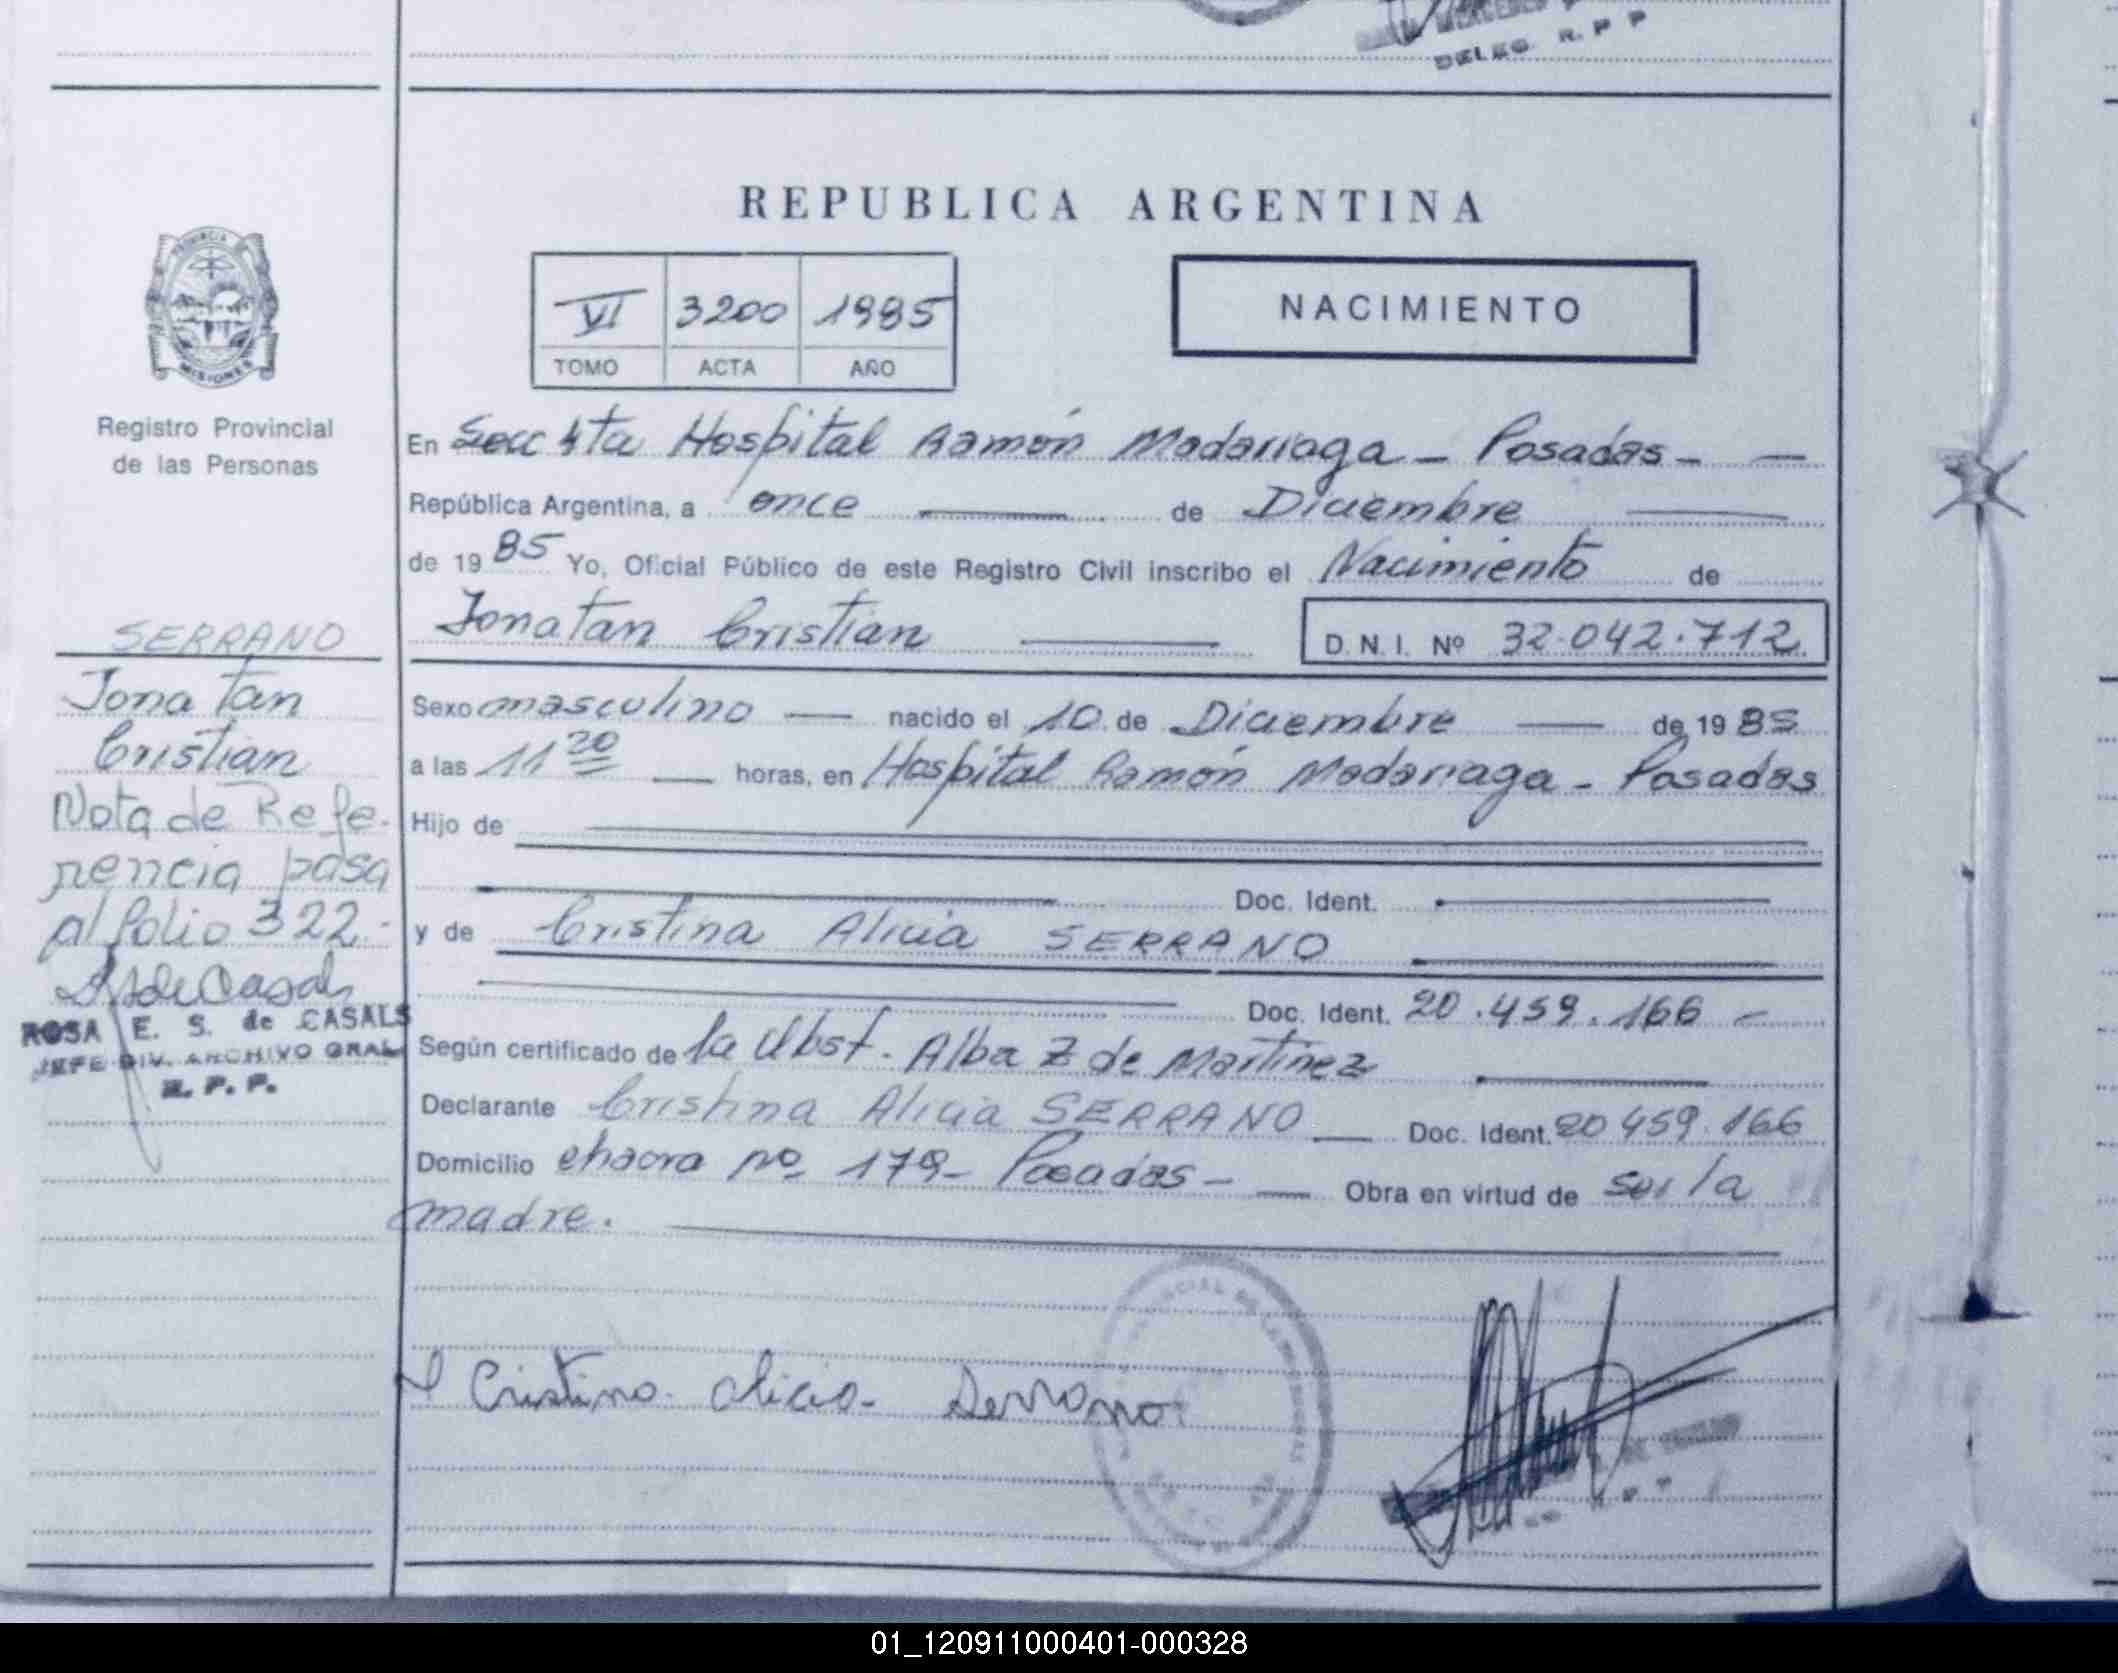 DELEG. R. P P
REPUBLICA ARGENTINA
VI 3200 1985
TOMO ACTA AÑO
NACIMIENTO
PROVINCIA
MISIONES
Registro Provincial
de las Personas
En Secc 4ta Hospital Ramón Madariaga - Posadas -
República Argentina, a once de Diciembre
de 1985 Yo, Oficial Público de este Registro Civil inscribo el Nacimiento de
Jonatan Cristian D. N. I. Nº 32.042.712
Sexo masculino nacido el 10 de Diciembre de 1985
a las 11 20 horas, en Hospital Ramón Madariaga - Posadas
Hijo de
Doc. Ident.
y de Cristina Alicia SERRANO
Doc. Ident. 20.459.166 -
Según certificado de la Obst. Alba Z de Martinez
Declarante Cristina Alicia SERRANO Doc. Ident. 20 459.166
Domicilio chacra nº 179 - Posadas - Obra en virtud de ser la
madre.
Cristina Alicia Serrano
SERRANO
Jonatan
Cristian
Nota de Refe-
rencia pasa
al folio 322.-
ROSA E. S. de CASALS
JEFE DIV. ARCHIVO GRAL
R. P. P.
01_120911000401-000328